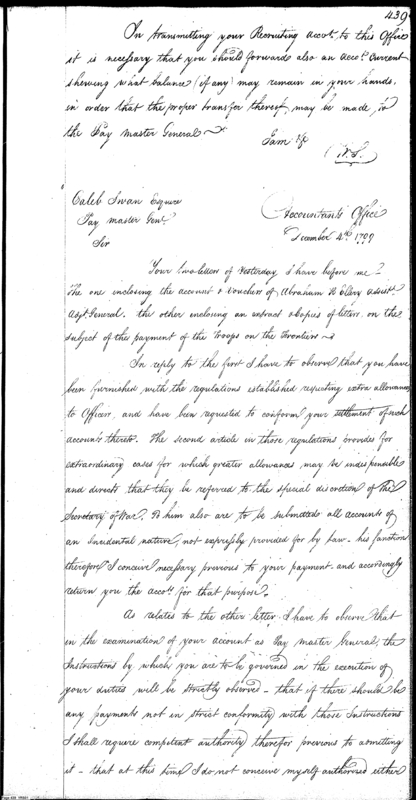 439
In transmitting your Recruiting accot. to this Office
it is necessary that you should forward also an Acct. Current
shewing what balance (if any) may remain in your hands,
in order that the proper transfer thereof, may be made, to
the Pay Master General
I am &c
W.S.
Caleb Swan Esquire
Pay master Genl.
Accountants Office
December 4th. 1799
Sir
Your two letters of Yesterday I have before me
The one inclosing the account & vouchers of Abraham R Ellery assist.
Adjt General. the other inclosing an extract & Copies of letters on the
subject of the payment of the Troops on the Frontiers
In reply to the first I have to observe that you have
been furnished with the regulations established respecting extra allowances
to Officers, and have been requested to conform your settlement of such
accounts thereto. The second article in those regulations provides for
extraordinary cases for which greater allowances may be indispensible
and directs that they be referred to the special discretion of The
Secretary of War, To him also are to be submitted all accounts of
an Incidental nature, not expressly provided for by Law - his sanction
therefore I conceive necessary previous to your payment and accordingly
return you the accot. for that purpose.
As relates to the other letter I have to observe that
in the examination of your account as Pay master General, the
Instructions by which you are to be governed in the execution of
your duties will be strictly observed - that if there should be
any payments not in strict conformity with those Instructions
I shall require competent authority therefor previous to admitting
it - that at this time I do not conceive myself authorised either